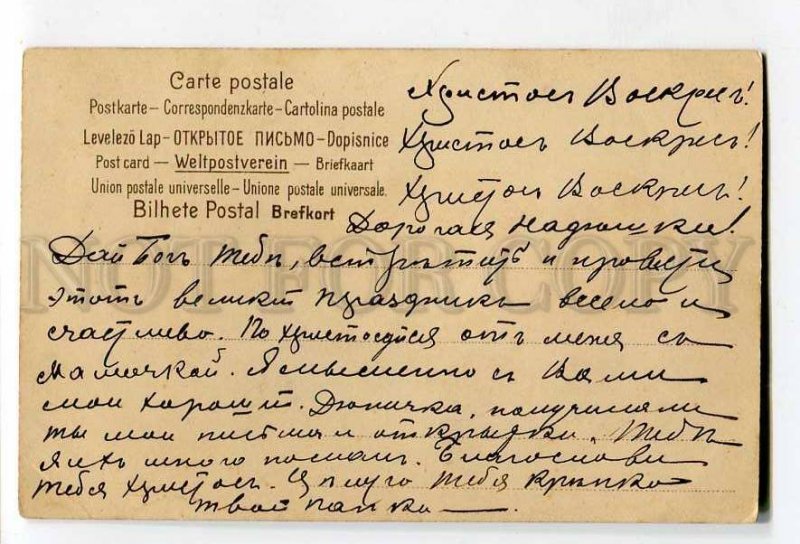 Carte postale
Postkarte – Correspondenzkarte – Cartolina postale
Levelező Lap – ОТКРЫТОЕ ПИСЬМО – Dopisnice
Post card — Weltpostverein — Briefkaart
Union postale universelle – Unione postale universale.
Bilhete Postal Brefkort
Христосъ Воскресъ!
Христосъ Воскресъ!
Христосъ Воскресъ!
Дорогая
Дай Богъ тебѣ, встрѣтить и провести
этотъ великій праздникъ весело и
счастливо. Похристосуйся отъ меня съ
Мамочкой. Я мысленно съ Вами
мои хорошіи. получила ли
ты мои письма и открытки. Тебѣ
я ихъ много послалъ. Благослови
тебя Христосъ. Цѣлую тебя крѣпко
твой папка —
NOT FOR COPY